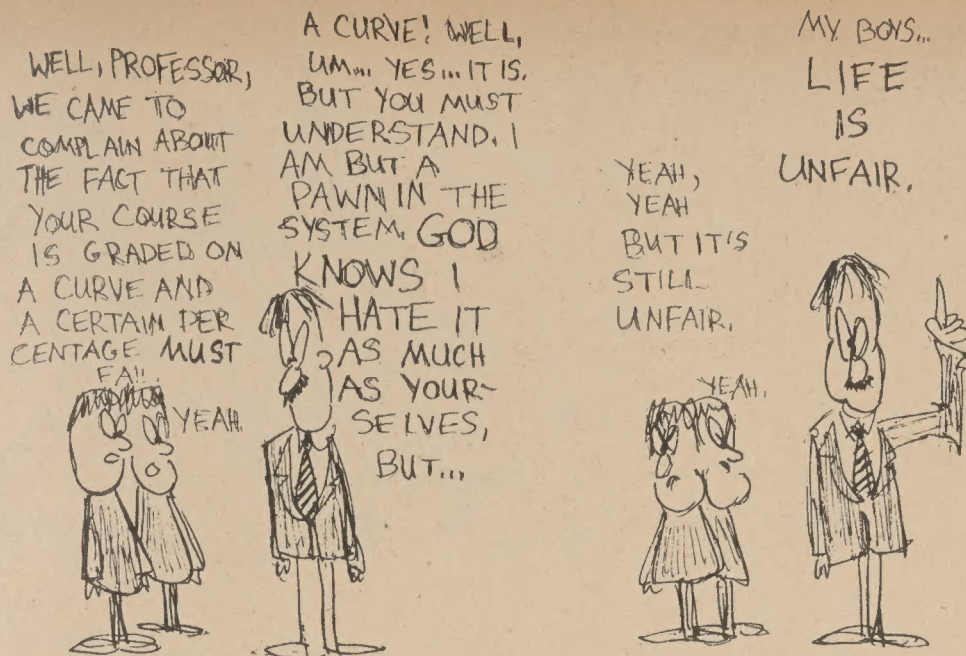 WELL, PROFESSOR,
WE CAME TO
COMPLAIN ABOUT
THE FACT THAT
YOUR COURSE
IS GRADED ON
A CURVE AND
A CERTAIN PER
CENTAGE MUST
FAIL.
YEAH.
A CURVE! WELL,
UM... YES... IT IS.
BUT YOU MUST
UNDERSTAND. I
AM BUT A
PAWN IN THE
SYSTEM. GOD
KNOWS I
HATE IT
AS MUCH
AS YOUR-
SELVES,
BUT...
YEAH,
YEAH
BUT IT'S
STILL
UNFAIR.
YEAH.
MY BOYS...
LIFE
IS
UNFAIR.